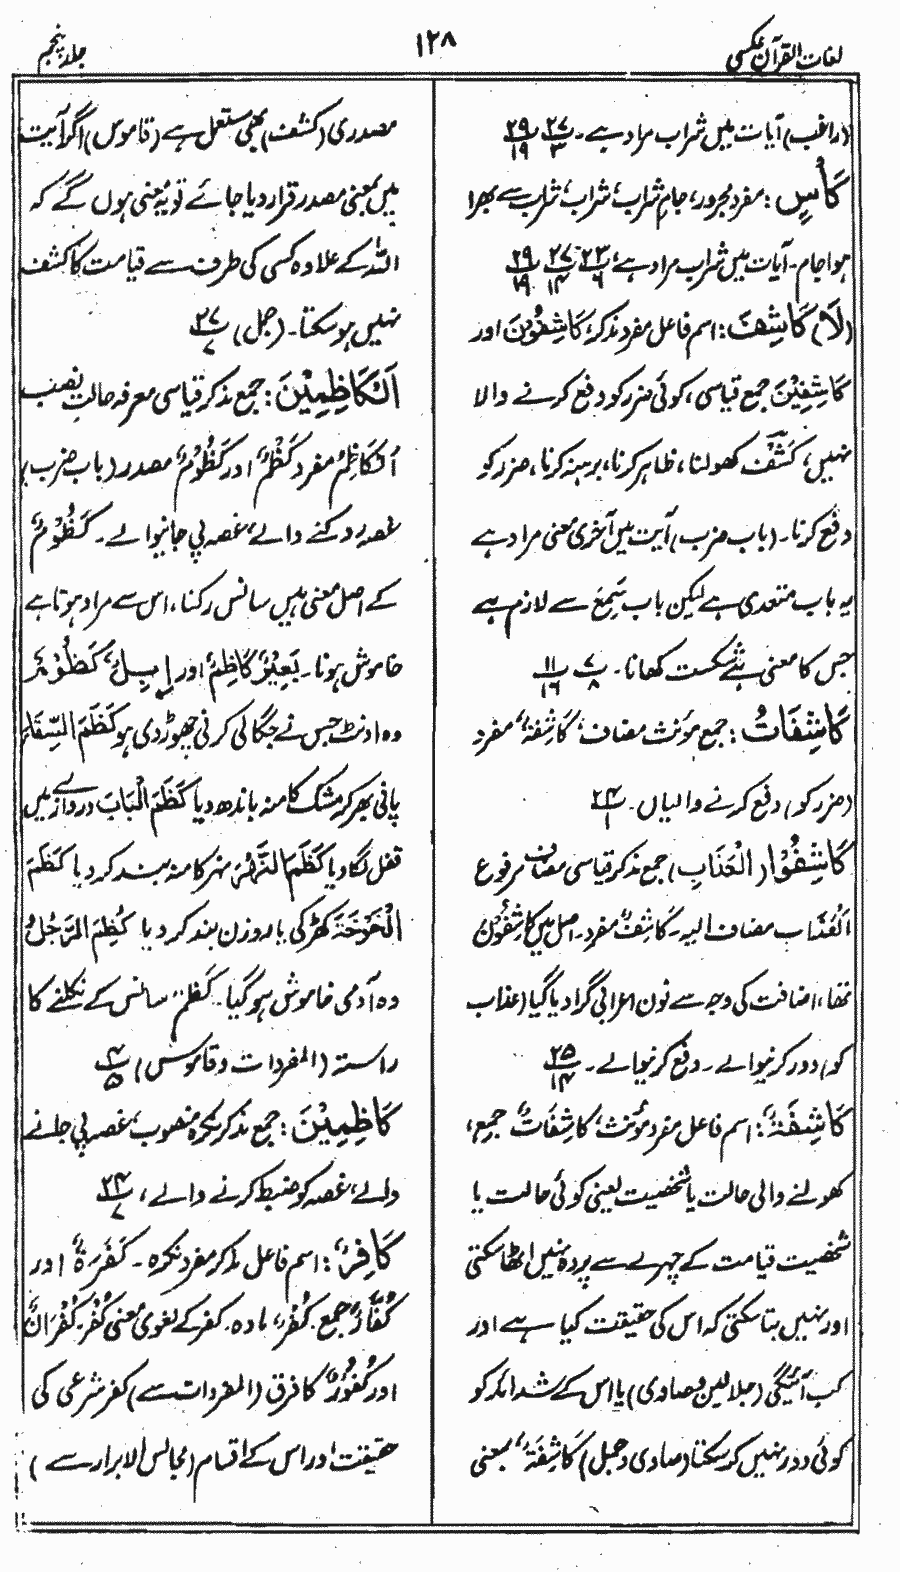 لغات القرآن عکسی
۱۲۸
جلد پنجم
(راغب) آیات میں شراب مراد ہے۔ ۲۷/۳ ۲۹/۱۹
کَأْسٍ: مفرد مجرور، جامِ شراب، شراب، شراب سے بھرا
ہوا جام۔ آیات میں شراب مراد ہے، ۲۳/۶ ۲۷/۱۴ ۲۹/۱۹
(لَا) کَاشِفَ: اسم فاعل مفرد مذکر، کَاشِفُوْنَ اور
کَاشِفِیْنَ جمع قیاسی، کوئی ضرر کو دفع کرنے والا
نہیں، کَشْفٌ کھولنا، ظاہر کرنا، برہنہ کرنا، ضرر کو
دفع کرنا۔ (باب ضرب) آیت میں آخری معنی مراد ہے
یہ باب متعدی ہے لیکن باب سَمِعَ سے لازم ہے
جس کا معنی ہے شکست کھانا۔ ۷/۸ ۱۱/۱۶
کَاشِفَاتُ: جمع مؤنث مضاف، کَاشِفَۃٌ مفرد
(ضرر کو) دفع کرنے والیاں۔ ۲۴/۱
کَاشِفُوْا (الْعَذَابِ) جمع مذکر قیاسی مضاف مرفوع
اَلْعَذَاب مضاف الیہ۔ کَاشِفٌ مفرد۔ اصل میں کَاشِفُوْنَ
تھا، اضافت کی وجہ سے نون اعرابی گرا دیا گیا (عذاب
کو) دور کرنیوالے۔ دفع کرنیوالے۔ ۲۵/۱۴
کَاشِفَۃٌ: اسم فاعل مفرد مؤنث، کَاشِفَاتٌ جمع،
کھولنے والی حالت یا شخصیت یعنی کوئی حالت یا
شخصیت قیامت کے چہرے سے پردہ نہیں اٹھا سکتی
اور نہیں بتا سکتی کہ اس کی حقیقت کیا ہے اور
کب آئیگی (جلالین وصاوی) یا اس کے شدائد کو
کوئی دور نہیں کر سکتا (صاوی وجمل) کَاشِفَۃٌ بمعنی
مصدری (کشف) بھی مستعمل ہے (قاموس) اگر آیت
میں بمعنی مصدر قرار دیا جائے تو یہ معنی ہوں گے کہ
اللہ کے علاوہ کسی کی طرف سے قیامت کا کشف
نہیں ہو سکتا۔ (جمل) ۲۷/۷
اَلْکَاظِمِیْنَ: جمع مذکر قیاسی معرفہ حالت نصب
اَلْکَاظِمُ مفرد کَظْمٌ اور کُظُوْمٌ مصدر (باب ضرب)
غصہ روکنے والے، غصہ پی جانیوالے۔ کُظُوْمٌ
کے اصل معنی ہیں سانس رکنا، اس سے مراد ہوتا ہے
خاموش ہونا۔ بَعِیْرٌ کَاظِمٌ اور اِبِلٌ کُظُوْمٌ
وہ اونٹ جس نے جگالی کرنی چھوڑ دی ہو کَظَمَ السِّقَاءَ
پانی بھر کر مشک کا منہ باندھ دیا کَظَمَ الْبَابَ دروازے میں
قفل لگا دیا کَظَمَ النَّهْرَ نہر کا منہ بند کر دیا کَظَمَ
الْخَوْخَةَ کھڑکی یا روزن بند کر دیا کُظِمَ الرَّجُلُ
وہ آدمی خاموش ہو گیا۔ کَظْمٌ سانس کے نکلنے کا
راستہ (المفردات وقاموس) ۴/۵
کَاظِمِیْنَ: جمع مذکر نکرہ منصوب، غصہ پی جانے
والے، غصہ کو ضبط کرنے والے، ۲۴/۷
کَافِرٌ: اسم فاعل مذکر مفرد نکرہ۔ کَفَرَۃٌ اور
کُفَّارٌ جمع۔ کُفْرٌ مادہ۔ کفر کے لغوی معنی کُفْر۔ کُفْرَانٌ
اور کُفُوْرٌ کا فرق (المفردات سے) کفر شرعی کی
حقیقت اور اس کے اقسام (مجالس الابرار سے)